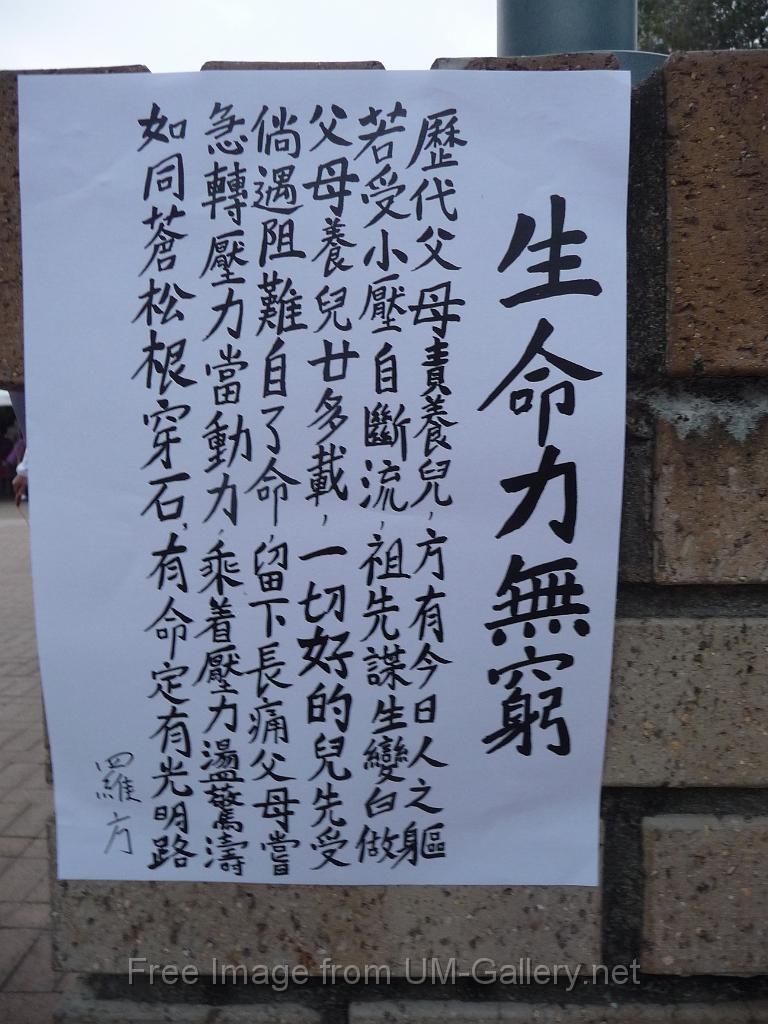 生命力無窮
歷代父母責養兒，方有今日人之軀
若受小壓自斷流，祖先謀生變白做
父母養兒廿多載，一切好的兒先受
倘遇阻難自了命，留下長痛父母嘗
急轉壓力當動力，乘着壓力盪驚濤
如同蒼松根穿石，有命定有光明路
四維方
Free Image from UM-Gallery.net